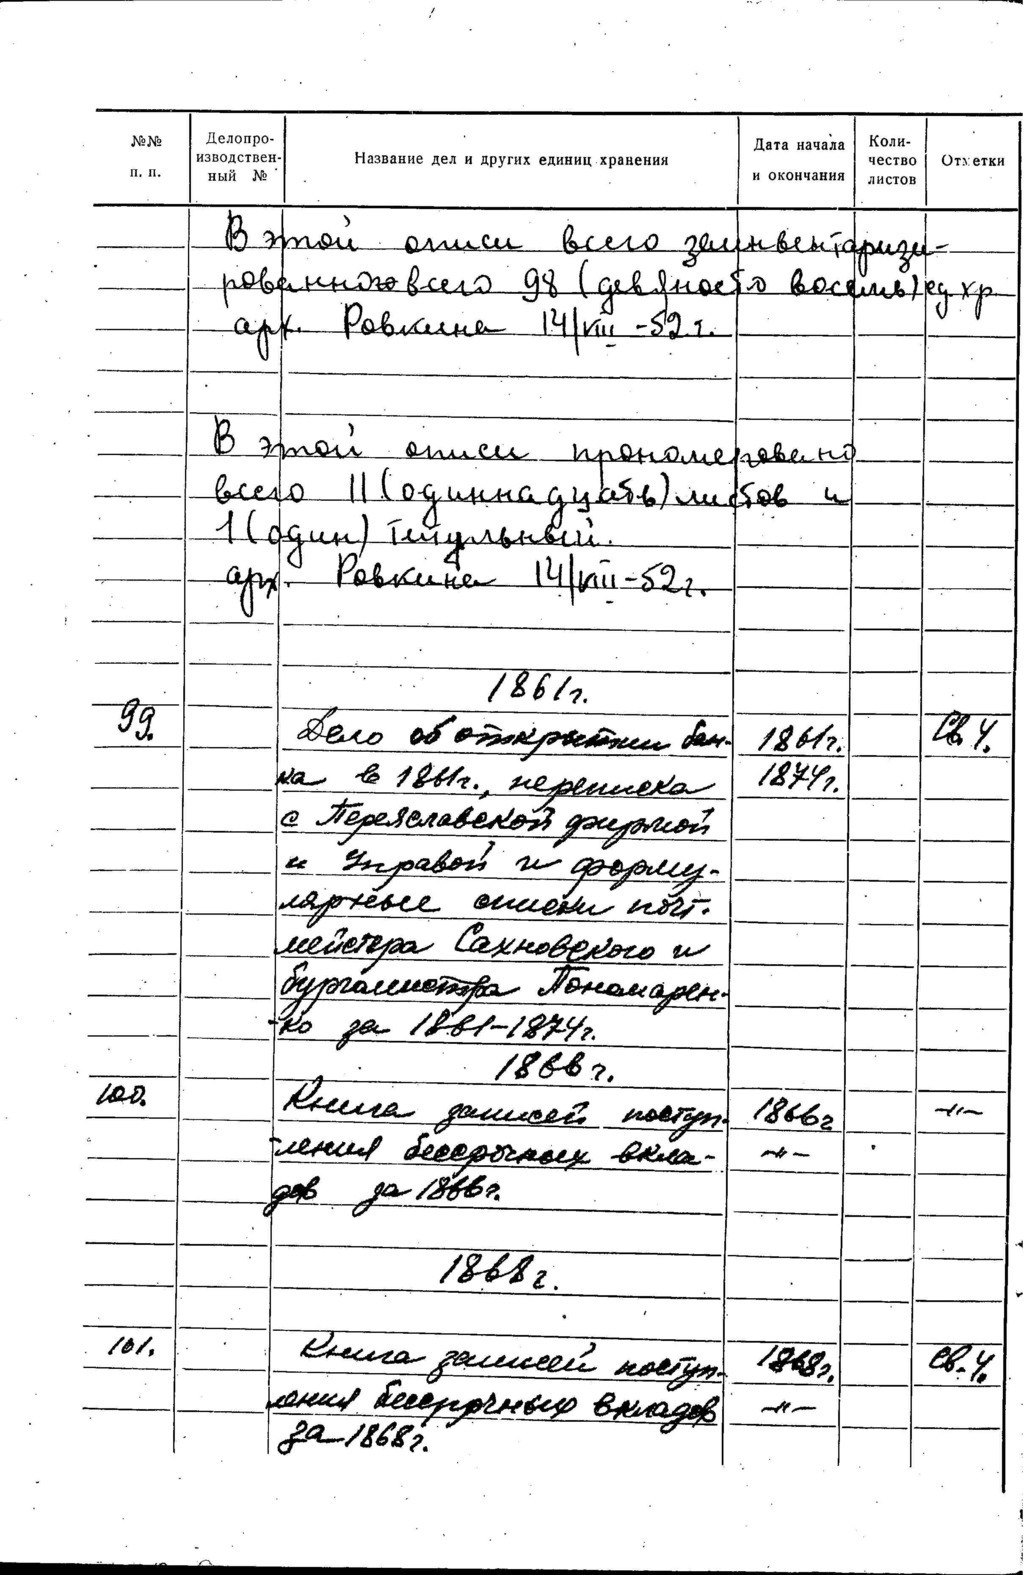 №№ п. п. Делопро-изводствен-ный № Название дел и других единиц хранения Дата начала и окончания Коли-чество листов Отметки
В этой описи всего заинвентаризи-
рованного всего 98 (девяносто восемь) ед хр
арх. Ровкина 14/VIII -52 г.
В этой описи прономеровано
всего 11 (одиннадцать) листов и
1 (один) титульный.
арх. Ровкина 14/VIII-52 г.
1861 г.
99. Дело об открытии бан- 1861 г. Св. 4.
ка в 1861 г., переписка 1874 г.
с Переяславской фирмой
и Управой и форму-
лярные списки почт.
мейстера Сахновского и
бургомистра Пономарен-
-ко за 1861-1874 г.
1866 г.
100. Книга записей поступ- 1866 г -"-
-ления бессрочных вкла- -"-
дов за 1866 г.
1868 г.
101. Книга записей поступ- 1868 г. Св. 4.
ления бессрочных вкладов -"-
за 1868 г.